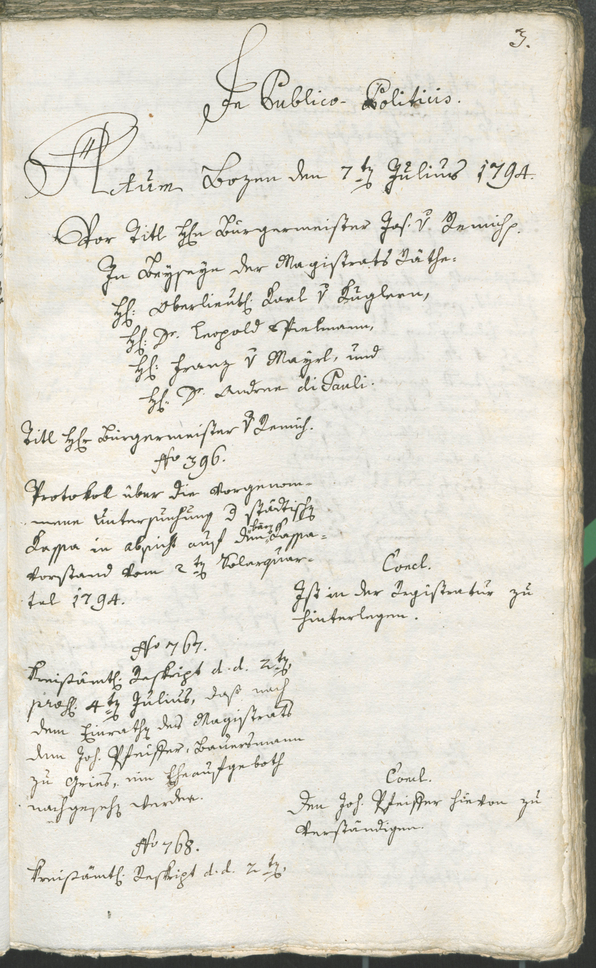 3.
In Publico-Politicis.
Actum Bozen den 7ten Julius 1794.
Vor Titl Hn Bürgermeister Jos. v Remich.
In Beyseyn der Magistrats Räthe:
H: Oberlieut: Karl v Kuglern,
H: Dr. Leopold Pielmann,
H: Franz v Mayrl, und
H: Dr. Andree di Pauli.
Titl Hr Bürgermeister v Remich.
No 396.
Protokol über die vorgenom-
mene Untersuchung d städtisch
Kassa in absicht auf den baren Kassa-
vorstand vom 2ten Solarquar-
tal 1794.
Concl.
Ist in der Registratur zu
hinterlegen.
No 767.
Kreisämtl: Reskript d.d. 2ten,
pros: 4ten Julius, daß nach
dem Einrathen des Magistrats
dem Joh. Pfeiffer, Bauersmann
zu Gries, ein Eheaufgeboth
nachgesehen werde.
Concl.
Den Joh. Pfeiffer hievon zu
verständigen.
No 768.
Kreisämtl: Reskript d.d. 2ten,